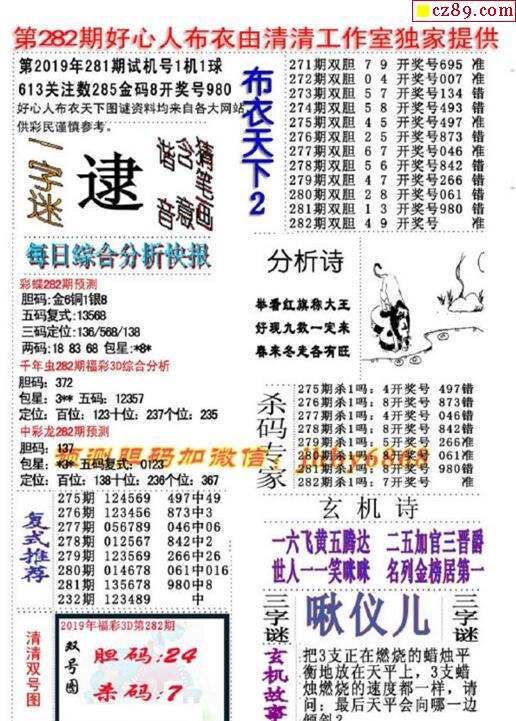 cz89.com
第282期好心人布衣由清清工作室独家提供
第2019年281期试机号1机1球
613关注数285金码8开奖号980
好心人布衣天下图谜资料均来自各大网站
供彩民谨慎参考。
一字迷
逮
猜含音
每日综合分析快报
彩蝶282期预测
胆码:金6铜1银8
五码复式:13568
三码定位:136/568/138
两码:18 83 68 包星:*8*
千年虫282期福彩3D综合分析
胆码: 372
包星: 3** 五码: 12357
定位: 百位: 123十位: 237个位: 235
中彩龙282期预测
胆码: 137
包星: *3* 五码复式: 0123
定位: 百位: 138十位: 236个位: 367
预测胆码加微信:
复式推荐
275期 124569 497中49
276期 123456 873中3
277期 056789 046中06
278期 012567 842中2
279期 123569 266中26
280期 014678 061中016
281期 135678 980中8
232期 123489 中
清清双号图
2019年福彩3D第282期
双号图
胆码:24
杀码:7
布衣天下2
271期双胆 7 9 开奖号695 准
272期双胆 0 4 开奖号007 准
273期双胆 5 7 开奖号134 错
274期双胆 5 8 开奖号493 错
275期双胆 4 5 开奖号497 准
276期双胆 2 5 开奖号873 错
277期双胆 6 7 开奖号046 准
278期双胆 5 6 开奖号842 错
279期双胆 4 7 开奖号266 错
280期双胆 2 8 开奖号061 错
281期双胆 1 3 开奖号980 错
282期双胆 4 9 开奖号 准
分析诗
举看红旗称大王
好现九数一定来
春来冬走各有旺
杀码专家
275期杀1吗: 4开奖号 497错
276期杀1吗: 8开奖号 873错
277期杀1吗: 4开奖号 046错
278期杀1吗: 8开奖号 842错
279期杀1吗: 5开奖号 266准
280期杀1吗: 8开奖号 061准
281期杀1吗: 8开奖号 980错
282期杀1吗: 7开奖号 准
玄机诗
一六飞黄五腾达 二五加官三晋爵
世人一一笑咪咪 名列金榜居第一
三字谜
啾仪儿
三字谜
玄机故事
把3支正在燃烧的蜡烛平
衡地放在天平上，3支蜡
烛燃烧的速度都一样，请
问：最后天平会向哪一边
倾斜?